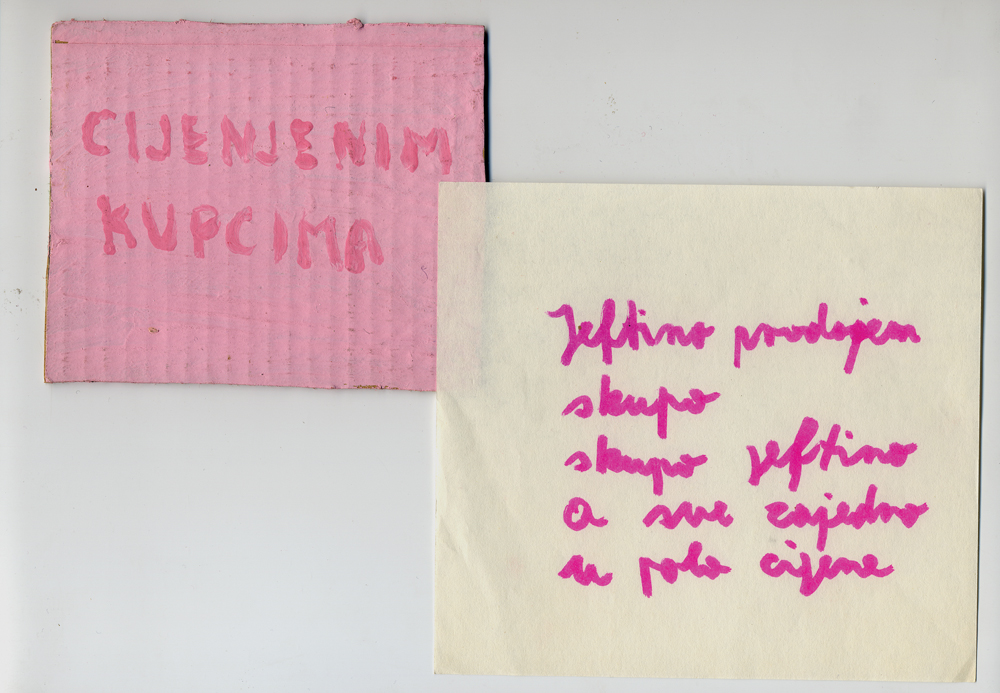 CIJENJENIM
KUPCIMA
Jeftino prodajem
skupo
skupo jeftino
a sve zajedno
u pola cijene